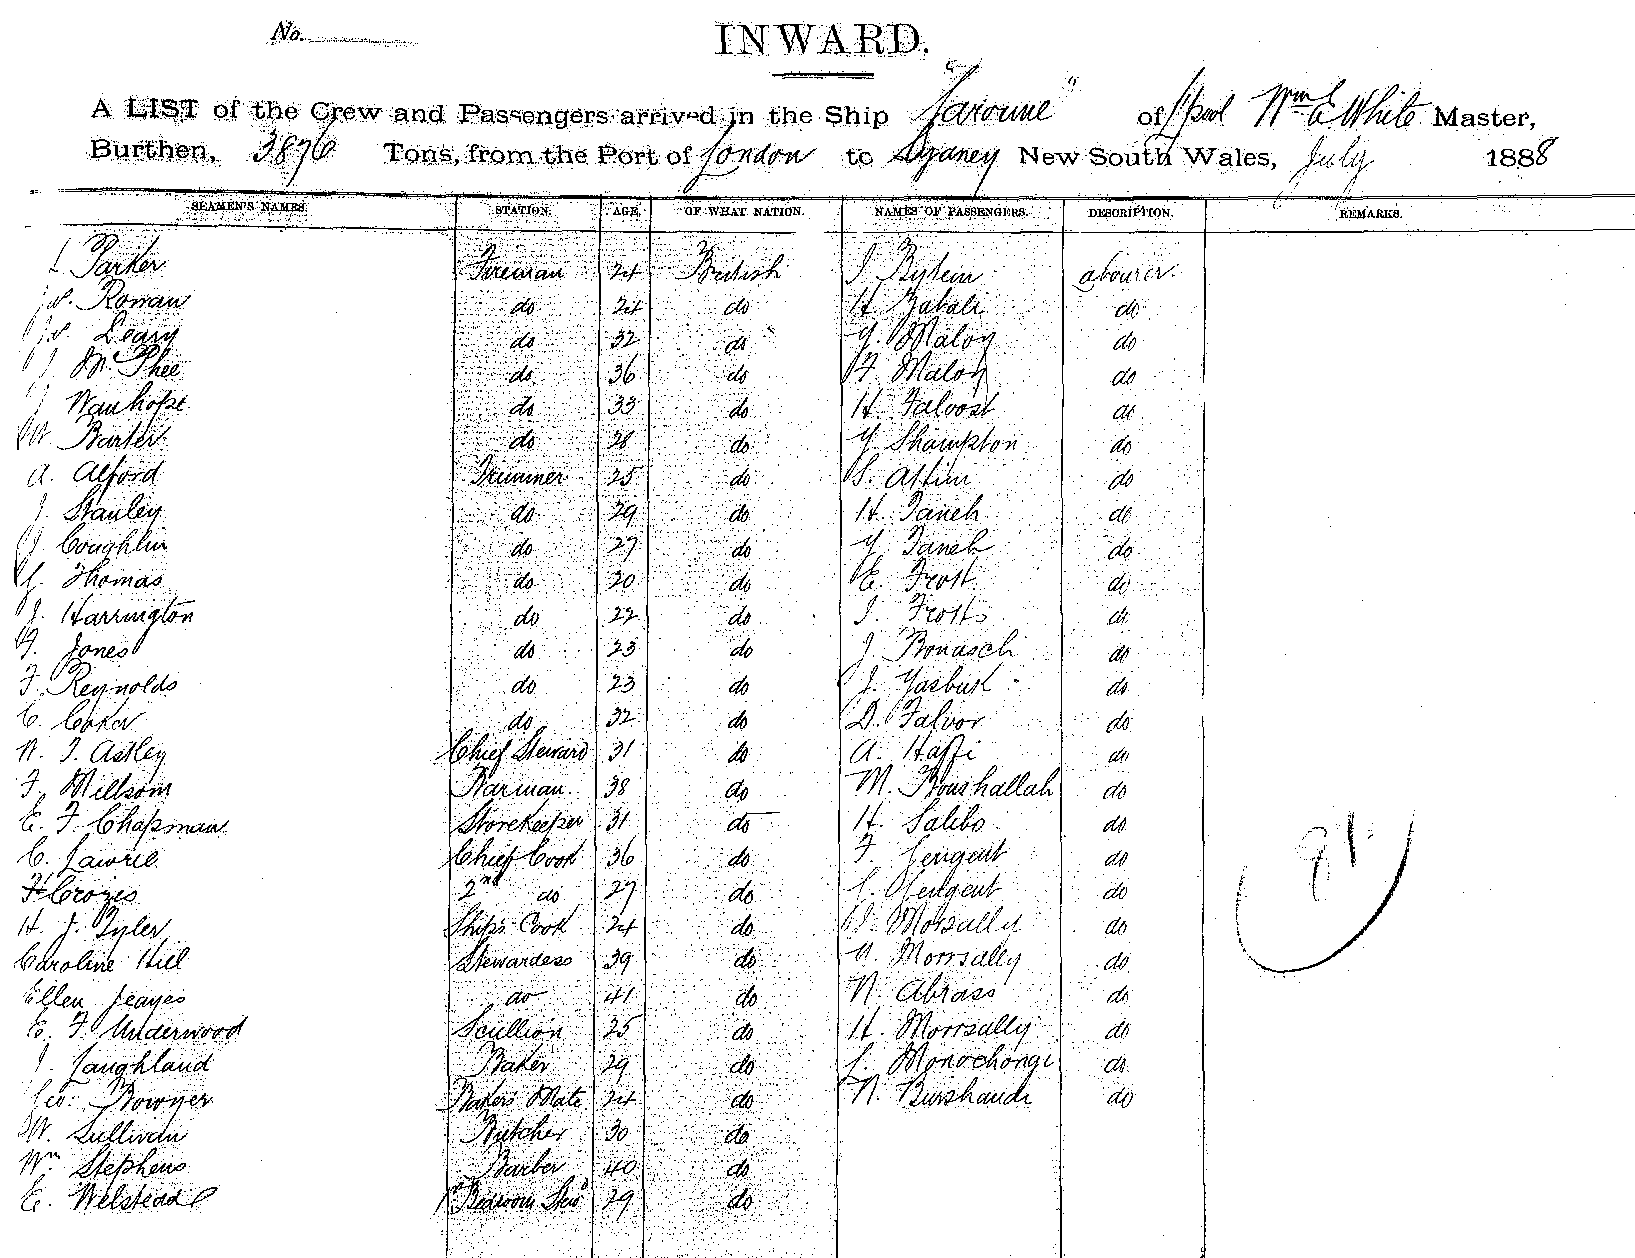 No.
INWARD.
A LIST of the Crew and Passengers arrived in the Ship "Garonne" of Wm E White Master,
Burthen, 3876 Tons, from the Port of London to Sydney New South Wales, July 1888
SEAMEN'S NAMES. STATION. AGE. OF WHAT NATION. NAMES OF PASSENGERS. DESCRIPTION. REMARKS.
Parker Fireman 24 British abourer
Rowan do 24 do H do
Leary do 32 do Y. Maloy do
J Mc Phee do 36 do Malon do
J Wanhope do 33 do H. Faloost do
W Barter do 28 do Y Shampton do
A. Alford Trimmer 25 do S. do
J. Stanley do 29 do H. Taneh do
J. Coughlin do 27 do Y Taneh do
G. Thomas do 20 do E. Frost do
J. Harrington do 22 do I. Frosts do
Jones do 23 do J. Bonasch do
F. Reynolds do 23 do J. Yasbuk do
C. Coker do 32 do D. Falvor do
N. J. Astley Chief Steward 31 do A. do
F. Millsom Barman 38 do M. Boushallah do
E. F. Chapman Storekeeper 31 do H. Salibo do
C. Lawrie Chief Cook 36 do F. Gengent do
H Crozes 2nd do 27 do Gengent do
H. J. Tyler Ships Cook 24 do Morsally do
Caroline Hill Stewardess 39 do Morrsally do
Ellen Jeayes do 41 do N. Abrass do
E. F. Underwood Scullion 25 do H. Morrsally do
J. Laughland Baker 29 do Monochongi do
Geo: Bowyer Bakers Mate 24 do N. Burshandi do
W. Sullivan Butcher 30 do
Wm Stephens Barber 40 do
E. Welstead 1st Bedroom Stewd 29 do
91